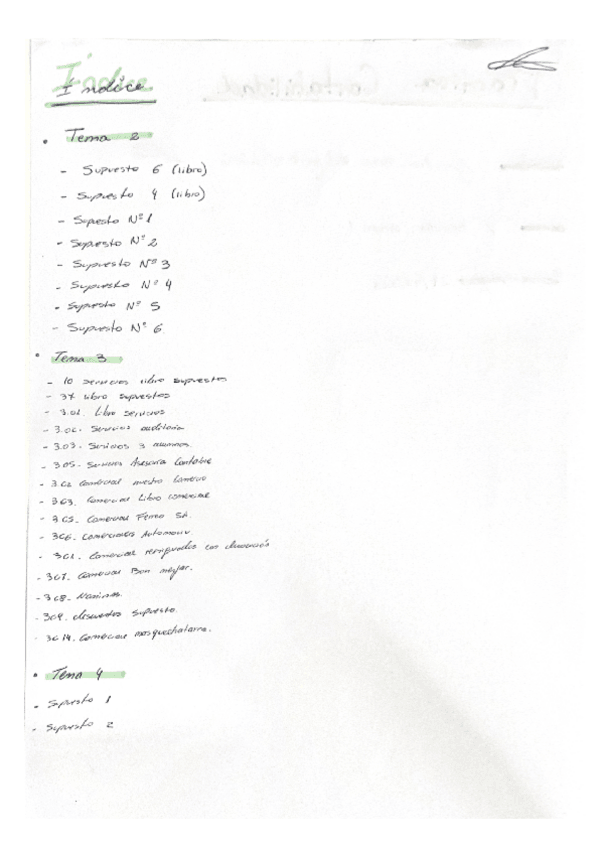 Índice
• Tema 2
- Supuesto 6 (libro)
- Supuesto 4 (libro)
- Supuesto Nº 1
- Supuesto Nº 2
- Supuesto Nº 3
- Supuesto Nº 4
- Supuesto Nº 5
- Supuesto Nº 6
• Tema 3
- 10 servicios libro supuestos
- 37 libro supuestos
- 3.01. Libro servicios
- 3.02. Servicios auditoria
- 3.03. Servicios 3 alumnos.
- 3.05. Servicios Asesoria Contable
- 3C2 Comercial nuestro Comercio
- 3C3. Comercial Libro comercial
- 3C5. Comercial Ferno SA.
- 3C6. Comerciales Automouv
- 3C1. Comercial con
- 3C7. Comercial Bon
- 3C8.
- 3C9. descuentos supuesto.
- 3C14. Comercial
• Tema 4
- Supuesto 1
- Supuesto 2